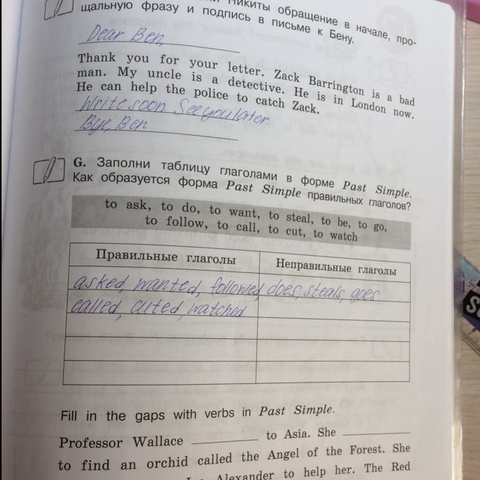 Никиты обращение в начале, про-
щальную фразу и подпись в письме к Бену.
Dear Ben,
Thank you for your letter. Zack Barrington is a bad
man. My uncle is a detective. He is in London now.
He can help the police to catch Zack.
Write soon See you later
Bye, Ben
G. Заполни таблицу глаголами в форме Past Simple.
Как образуется форма Past Simple правильных глаголов?
to ask, to do, to want, to steal, to be, to go,
to follow, to call, to cut, to watch
Правильные глаголы Неправильные глаголы
asked, wanted, followed, does, steals, goes
called, cuted, watched
Fill in the gaps with verbs in Past Simple.
Professor Wallace ________ to Asia. She ________
to find an orchid called the Angel of the Forest. She
Alexander to help her. The Red